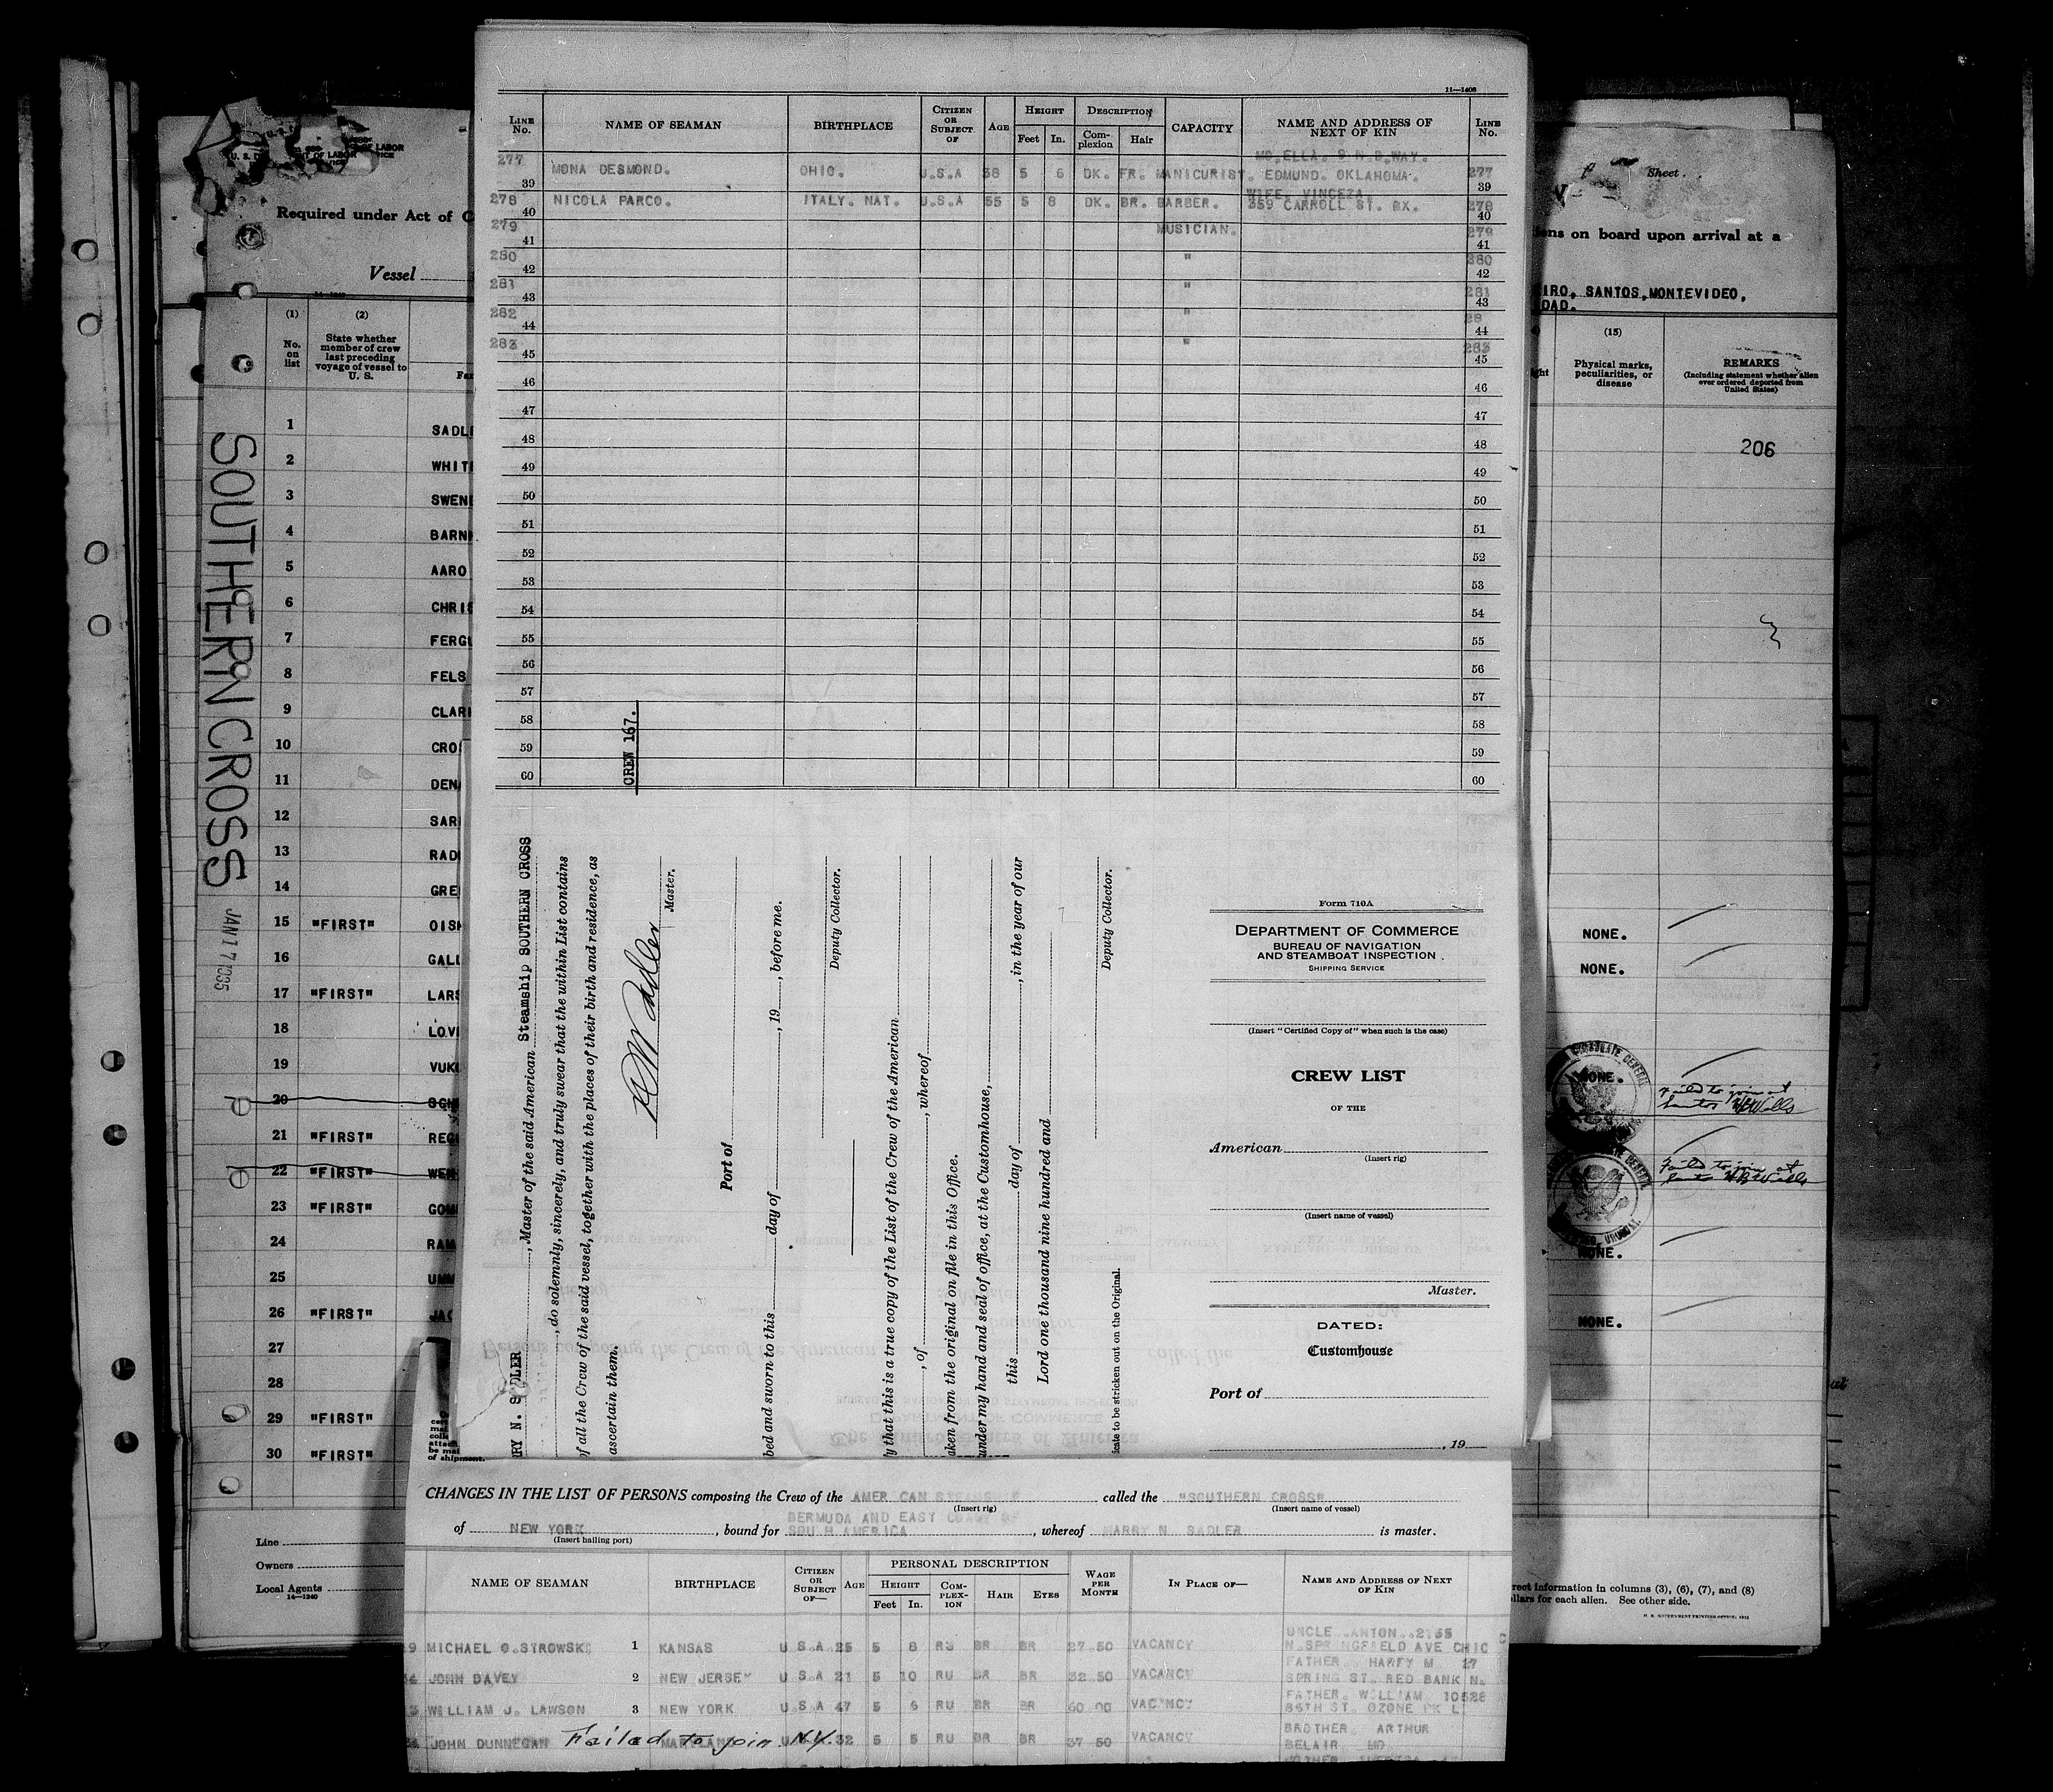 11—1408
LINE No.
NAME OF SEAMAN
BIRTHPLACE
CITIZEN OR SUBJECT OF
AGE
HEIGHT
Feet In.
DESCRIPTION
Complexion Hair
CAPACITY
NAME AND ADDRESS OF NEXT OF KIN
LINE No.
MO.ELLA. 9 N.B.WAY.
277 39 MONA DESMOND. OHIO. U.S.A 38 5 6 DK. FR. MANICURIST. EDMUND. OKLAHOMA. 277 39
WIFE. VINCEZA.
278 40 NICOLA PARCO. ITALY. NAT. U.S.A 55 5 8 DK. BR. BARBER. 359 CARROLL ST. BX. 278 40
279 41 MUSICIAN. 279 41
280 42 " 280 42
281 43 " 281 43
282 44 " 28 44
283 45 " 283 45
46 46
47 47
48 48
49 49
50 50
51 51
52 52
53 53
54 54
55 55
56 56
57 57
58 58
59 59
60 60
CREW 167.
RY N. SADLER, Master of the said American Steamship SOUTHERN CROSS
, do solemnly, sincerely, and truly swear that the within List contains
of all the Crew of the said vessel, together with the places of their birth and residence, as
ascertain them.
Master.
Port of
bed and sworn to this day of , 19 , before me.
Deputy Collector.
y that this is a true copy of the List of the Crew of the American
, of , whereof
ken from the original on file in this Office.
under my hand and seal of office, at the Customhouse,
this day of , in the year of our
Lord one thousand nine hundred and
Deputy Collector.
cate to be stricken out on the Original.
Form 710A
DEPARTMENT OF COMMERCE
BUREAU OF NAVIGATION
AND STEAMBOAT INSPECTION
SHIPPING SERVICE
(Insert "Certified Copy of" when such is the case)
CREW LIST
OF THE
American
(Insert rig)
(Insert name of vessel)
Master.
DATED:
Customhouse
Port of
, 19
CHANGES IN THE LIST OF PERSONS composing the Crew of the AMER CAN STEAMSHIP called the "SOUTHERN CROSS"
(Insert rig) (Insert name of vessel)
BERMUDA AND EAST COAST OF
of NEW YORK, bound for SOUTH AMERICA, whereof HARRY N SADLER is master.
(Insert hailing port)
NAME OF SEAMAN
BIRTHPLACE
CITIZEN OR SUBJECT OF—
AGE
PERSONAL DESCRIPTION
HEIGHT
Feet In.
COMPLEXION
HAIR
EYES
WAGE PER MONTH
IN PLACE OF—
NAME AND ADDRESS OF NEXT OF KIN
UNCLE ANTON. 2155
MICHAEL O.STROWSKI 1 KANSAS U S.A 25 5 8 RU BR BR 27.50 VACANCY N.SPRINGFIELD AVE CHIC
FATHER. HARRY M 27
JOHN DAVEY 2 NEW JERSEY U S.A 21 5 10 RU BR BR 32 50 VACANCY SPRING ST. RED BANK N.
FATHER. WILLIAM 10528
WILLIAM J. LAWSON 3 NEW YORK U S A 47 5 6 RU BR BR 60 00 VACANCY 86TH ST. OZONE PK L
BROTHER. ARTHUR
JOHN DUNNEGAN MARYLAND U.S.A 32 5 5 RU BR BR 37 50 VACANCY BELAIR MD
Failed to join N.Y.
SOUTHERN CROSS
JAN 17 1935
Required under Act of C
Vessel
(1)
No. on list
(2)
State whether member of crew last preceding voyage of vessel to U. S.
1 SADL
2 WHIT
3 SWEN
4 BARN
5 AARO
6 CHRIS
7 FERGU
8 FELS
9 CLAR
10 CROS
11 DEN
12 SAR
13 RAD
14 GRE
15 "FIRST" OIS
16 GALL
17 "FIRST" LARS
18 LOVI
19 VUK
20 SCH
21 "FIRST" REG
22 "FIRST" WEH
23 "FIRST" GOM
24 RAM
25 UMM
26 "FIRST" JAC
27
28
29 "FIRST"
30 "FIRST"
of shipment.
Line
Owners
Local Agents
14—1240
Sheet
ens on board upon arrival at a
IRO, SANTOS, MONTEVIDEO,
DAD.
(15)
Physical marks, peculiarities, or disease
REMARKS
(Including statement whether alien ever ordered deported from United States)
206
NONE.
NONE.
NONE.
Failed to join at
Santos
Failed to join at
Santos
NONE.
NONE.
rect information in columns (3), (6), (7), and (8)
ollars for each alien. See other side.
U. S. GOVERNMENT PRINTING OFFICE: 1932